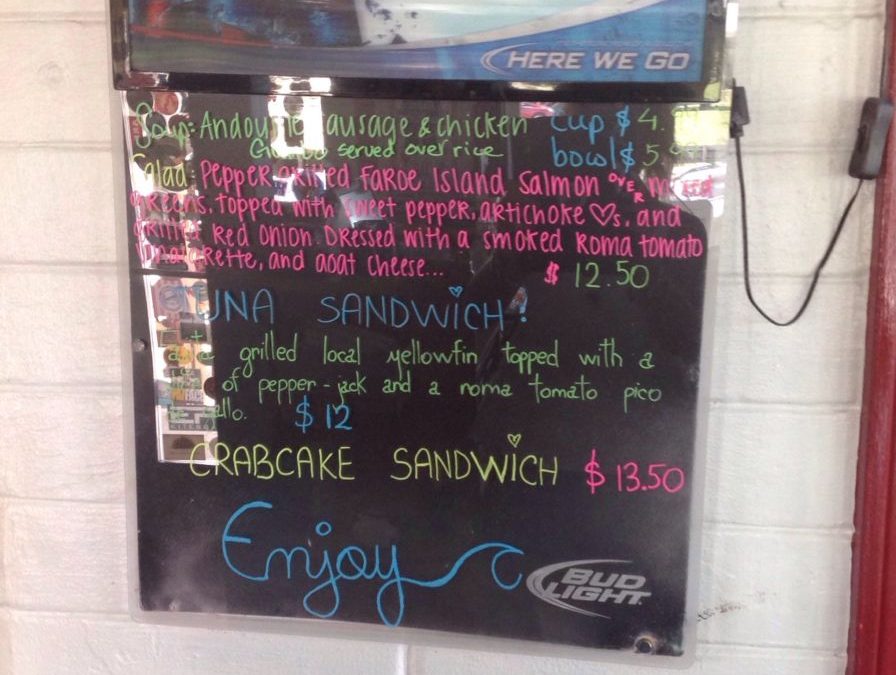 HERE WE GO
Soup: Andouille Sausage & chicken cup $ 4.
Gumbo served over rice bowl $ 5.
Salad: Pepper Grilled Faroe Island Salmon OVER mixed
Greens, topped with sweet pepper, artichoke ♡s, and
Grilled Red Onion. Dressed with a smoked Roma tomato
vinaigrette, and goat cheese... $ 12.50
TUNA SANDWiCH!
grilled local yellowfin topped with a
of pepper-jack and a roma tomato pico
gallo. $ 12
CRABCAKE SANDWiCH $ 13.50
Enjoy
BUD
LIGHT